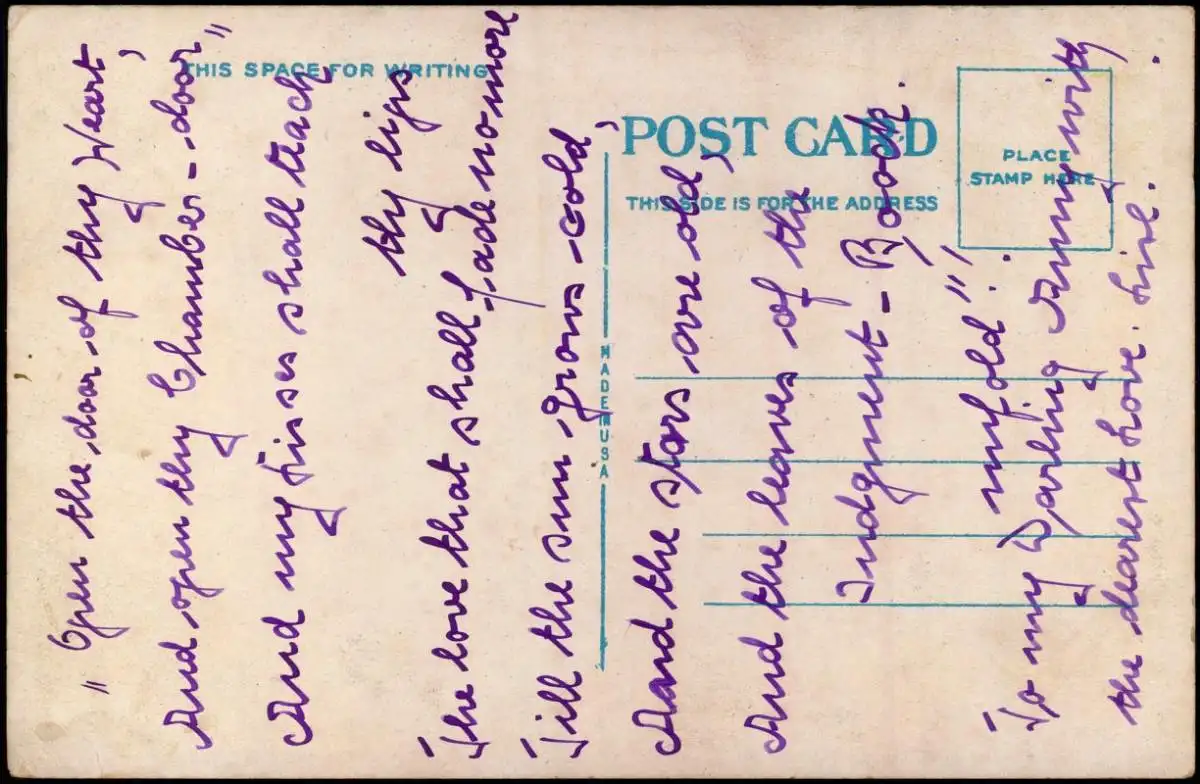 " Open the door of thy Heart,
And open thy Chamber-door,"
And my kisses shall teach
thy lips
The love that shall fade no more
Till the sun grows cold,
Aand the stars are old,
And the leaves of the
Judgment-Book.
unfold."!
To my Darling Amy with
the dearest Love.
THIS SPACE FOR WRITING
POST CARD
THIS SIDE IS FOR THE ADDRESS
PLACE
STAMP HERE
MADE IN USA